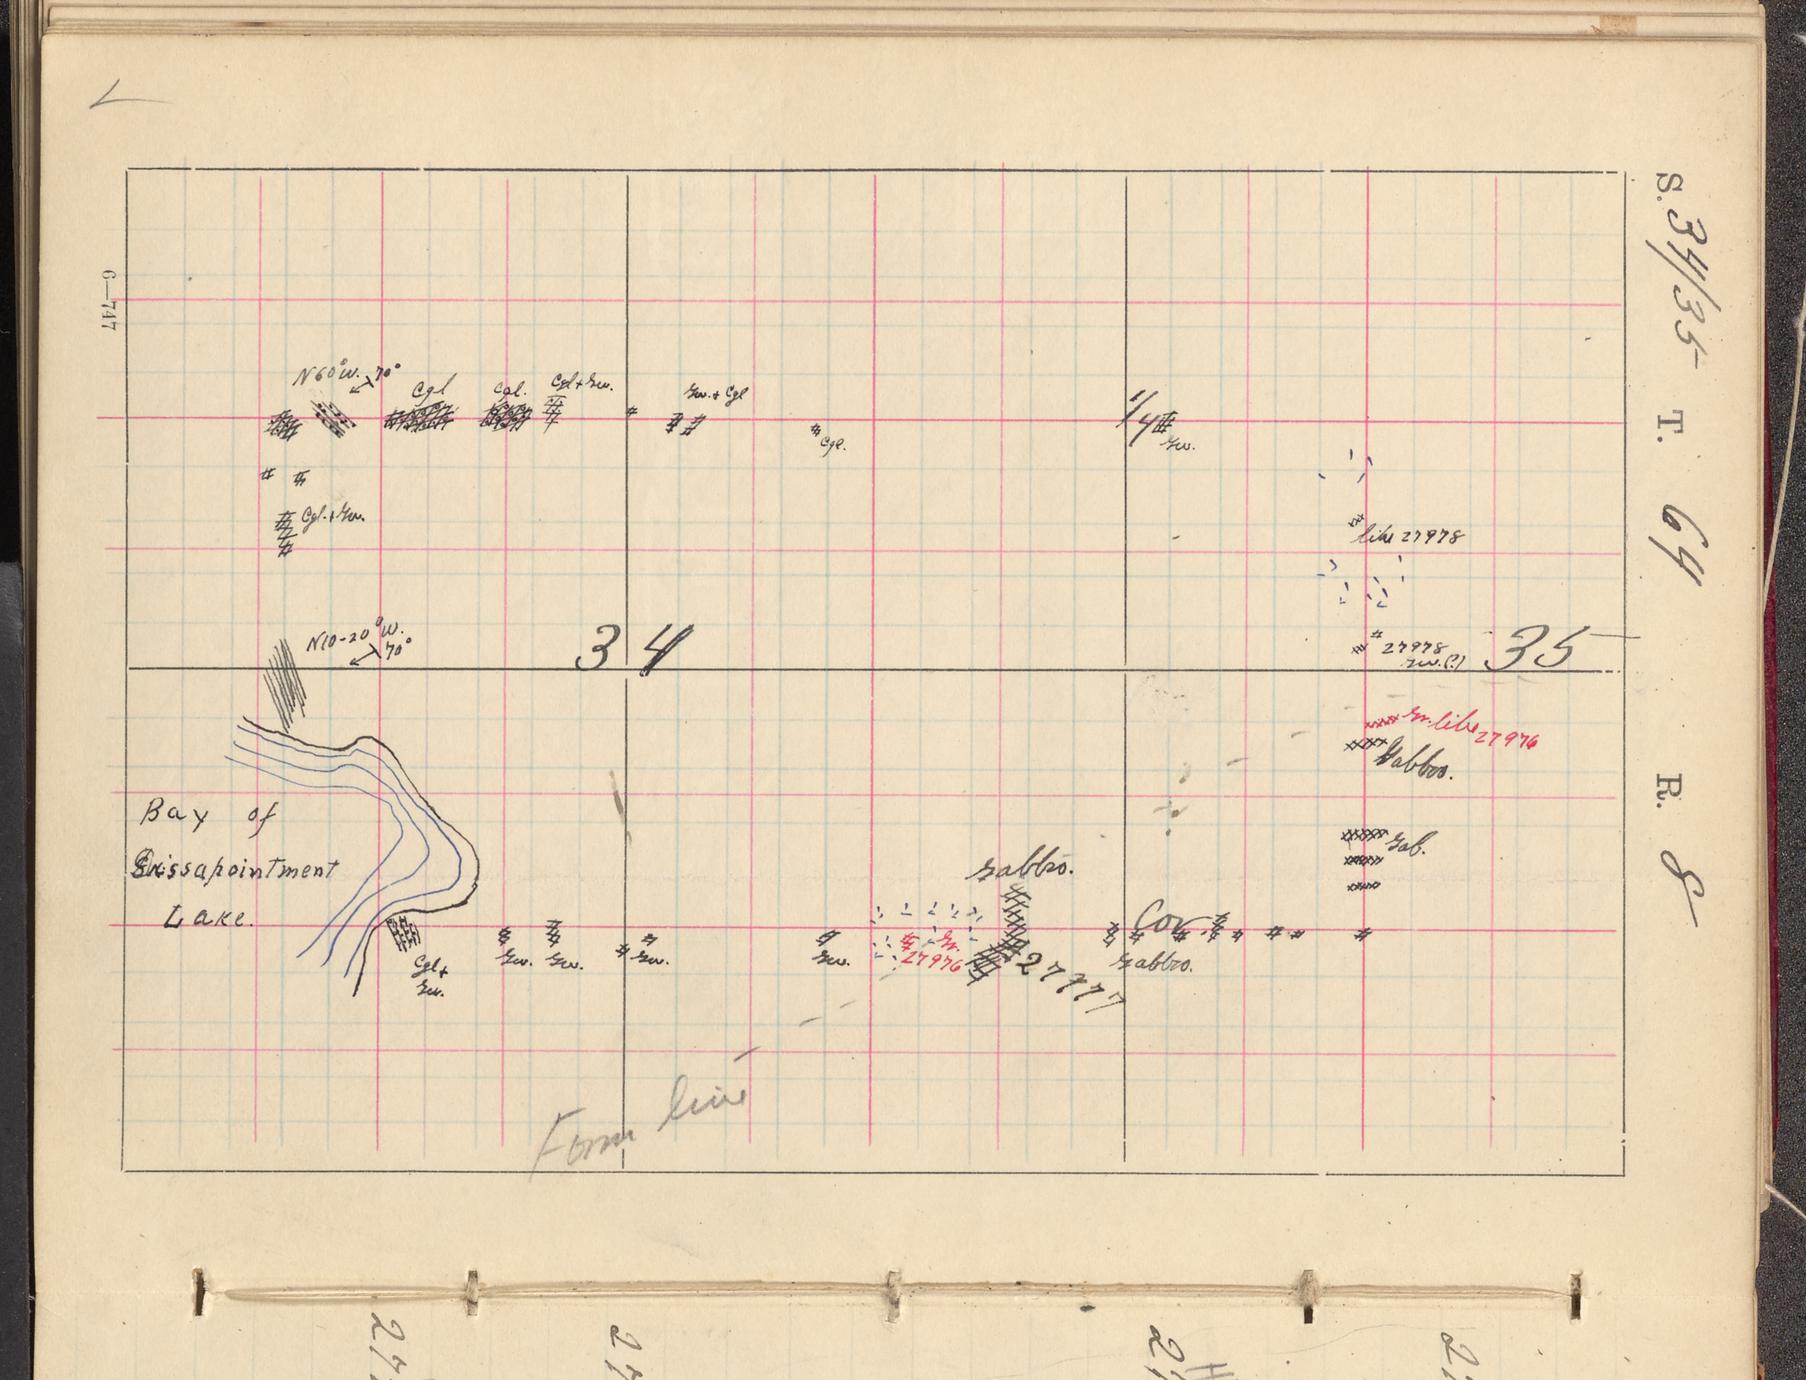 S. 34/35 T. 64 R. 8
6—747
N 60° W. 70°
Cgl
Cgl.
Cgl + Gw.
Gw. + Cgl
Cgl.
1/4
Gw.
Cgl. + Gw.
like 27978
N10-20° W.
70°
34
27978
Gw. (?)
35
Gr. like 27976
Gabbro.
Bay of
Dissapointment
Lake.
Gab.
Gabbro.
Cor.
Cgl +
Gw.
Gw.
Gw.
Gw.
Gw.
Gr.
27976
27977
Gabbro.
Form line